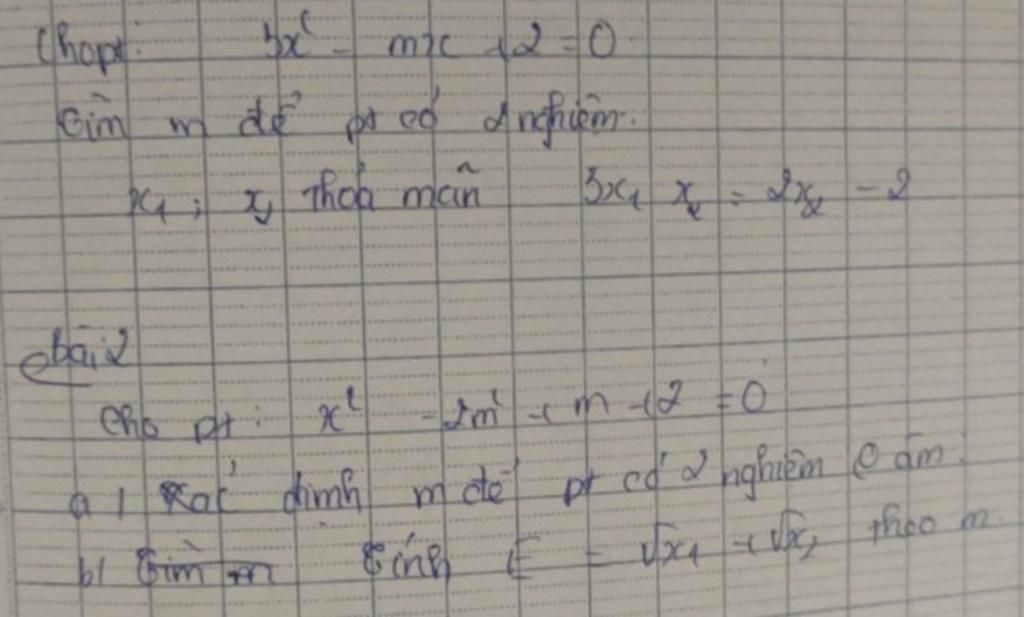 Cho pt: 3x² - mx + 2 = 0.
Tìm m để pt có 2 nghiệm.
x₁ ; x₂ thoả mãn 3x₁ x₂ = 2x₂ - 2
bài 2
Cho pt: x² - 2m² + m + 2 = 0
a / Xác định m để pt có 2 nghiệm âm.
b/ Tìm m tính E = √x₁ + √x₂ theo m.